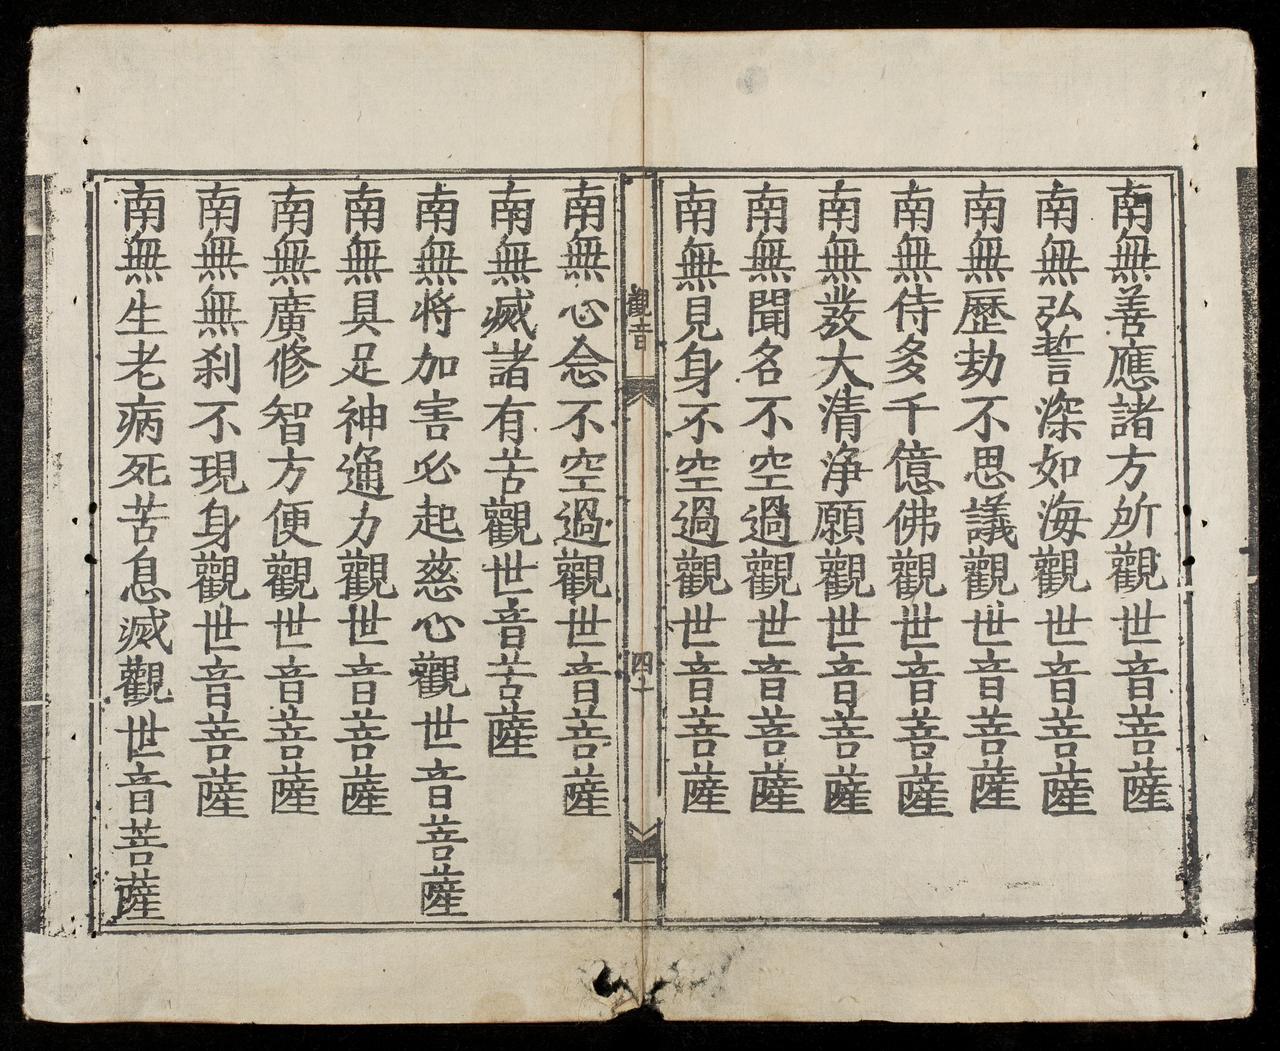 南無善應諸方所觀世音菩薩
南無弘誓深如海觀世音菩薩
南無歷劫不思議觀世音菩薩
南無侍多千億佛觀世音菩薩
南無發大清淨願觀世音菩薩
南無聞名不空過觀世音菩薩
南無見身不空過觀世音菩薩
觀音
四十
南無心念不空過觀世音菩薩
南無滅諸有苦觀世音菩薩
南無將加害必起慈心觀世音菩薩
南無具足神通力觀世音菩薩
南無廣修智方便觀世音菩薩
南無無刹不現身觀世音菩薩
南無生老病死苦息滅觀世音菩薩